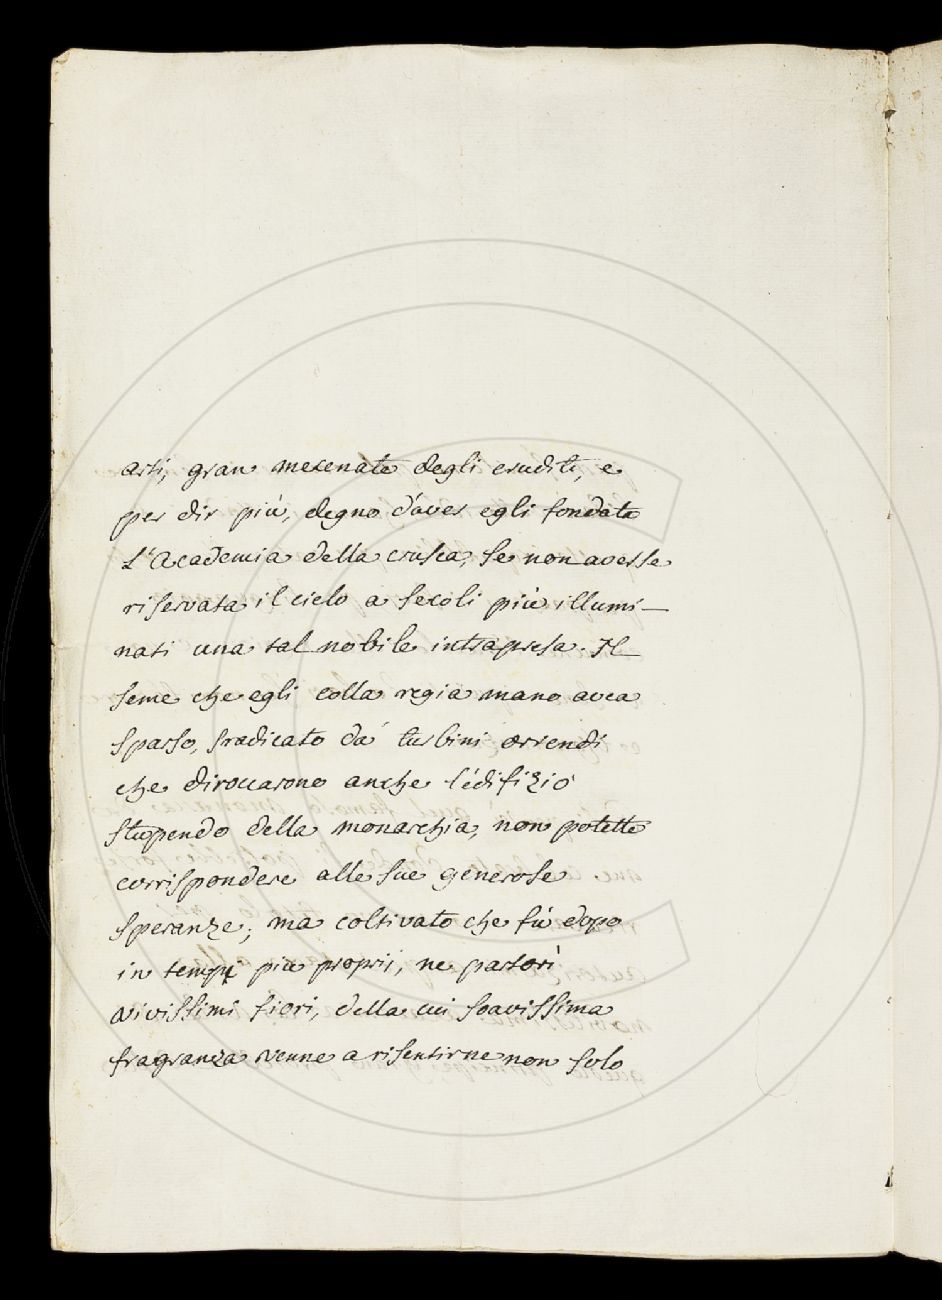 arti, gran mecenate degli eruditi, e
per dir più, degno d'aver egli fondata
L'Academia della crusca, se non avesse
riservata il cielo a secoli più illumi–
nati una tal nobile intrapresa. Il
seme che egli colla regia mano avea
sparso, sradicato da' turbini orrendi
che diroccarono anche l'edifizio
stupendo della monarchia, non potette
corrispondere alle sue generose
speranze; ma coltivato che fù dopo
in tempi più proprii, ne partorì
vivissimi fiori, della cui soavissima
fragranza venne a risentirne non solo